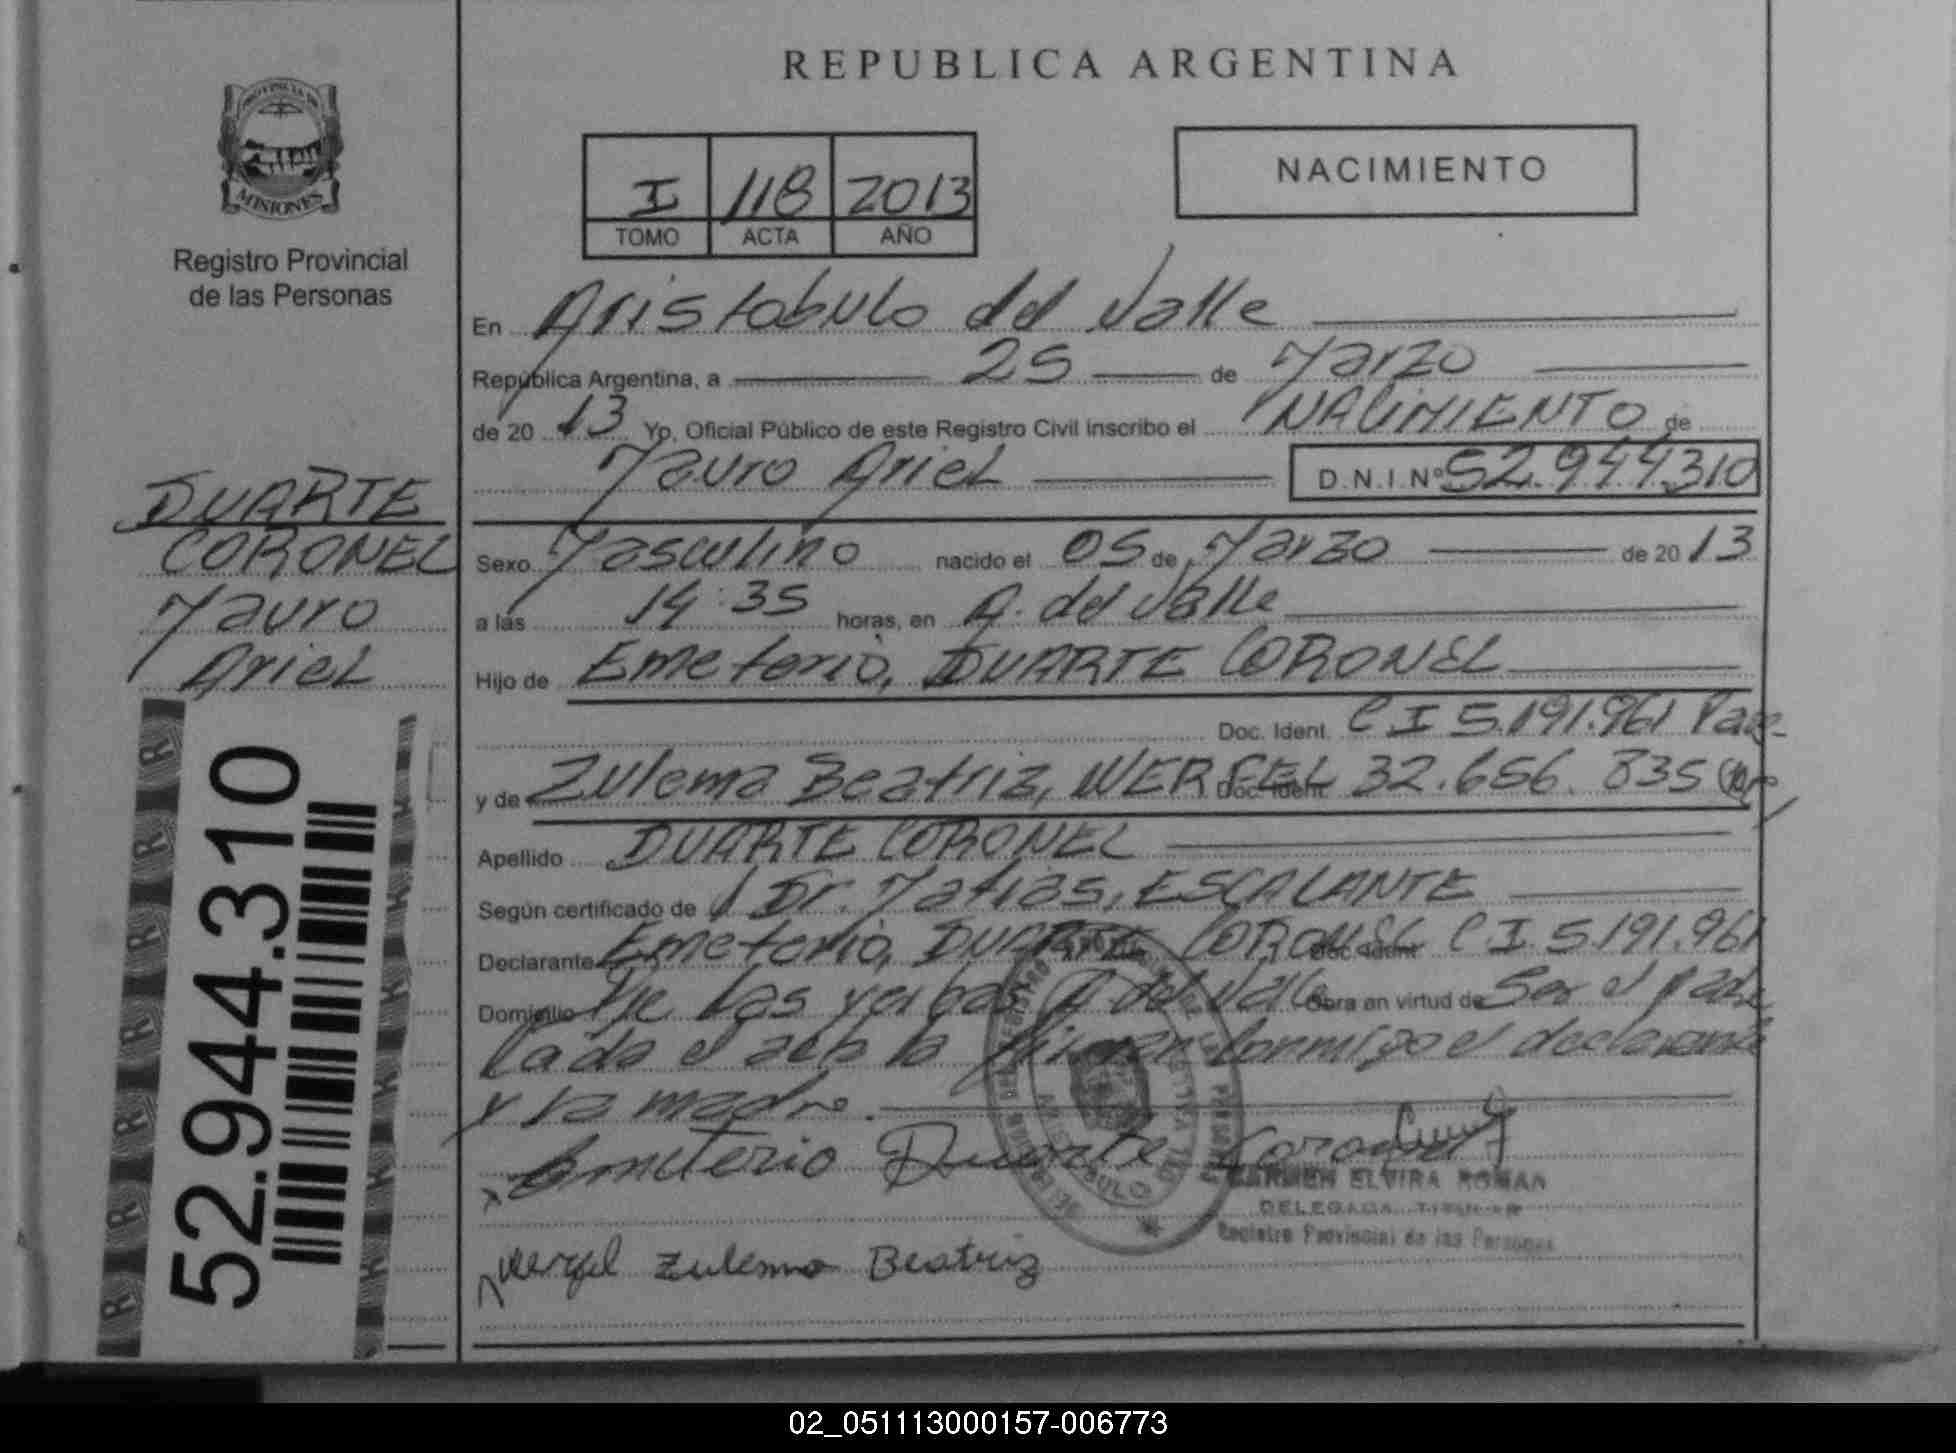 REPUBLICA ARGENTINA
PROVINCIA DE
MISIONES
Registro Provincial
de las Personas
I 118 2013
TOMO ACTA AÑO
NACIMIENTO
En Aristobulo del Valle
República Argentina, a 25 de Marzo
de 2013 Yo, Oficial Público de este Registro Civil inscribo el NACIMIENTO de
Mauro Ariel D.N.I.Nº 52.944.310
DUARTE
CORONEL
Mauro
Ariel
Sexo Masculino nacido el 05 de Marzo de 2013
a las 14:35 horas, en A. del Valle
Hijo de Emeterio, DUARTE CORONEL
Doc. Ident. C I 5.191.961
y de Zulema Beatriz, WERGEL Doc. Ident. 32.656.835
Apellido DUARTE CORONEL
Según certificado de Dr. Matias, ESCALANTE
Declarante Emeterio, DUARTE CORONEL Doc. Ident. C I 5.191.961
Domicilio De Las yerbas A. del Valle Obra en virtud de Ser el padre
Leida el acta la firman conmigo el declarante
y la madre.
Emeterio Duarte Coronel
CARMEN ELVIRA ROMAN
DELEGADA TITULAR
Registro Provincial de las Personas
Wergel Zulema Beatriz
52.944.310
R R R R R R R
02_051113000157-006773